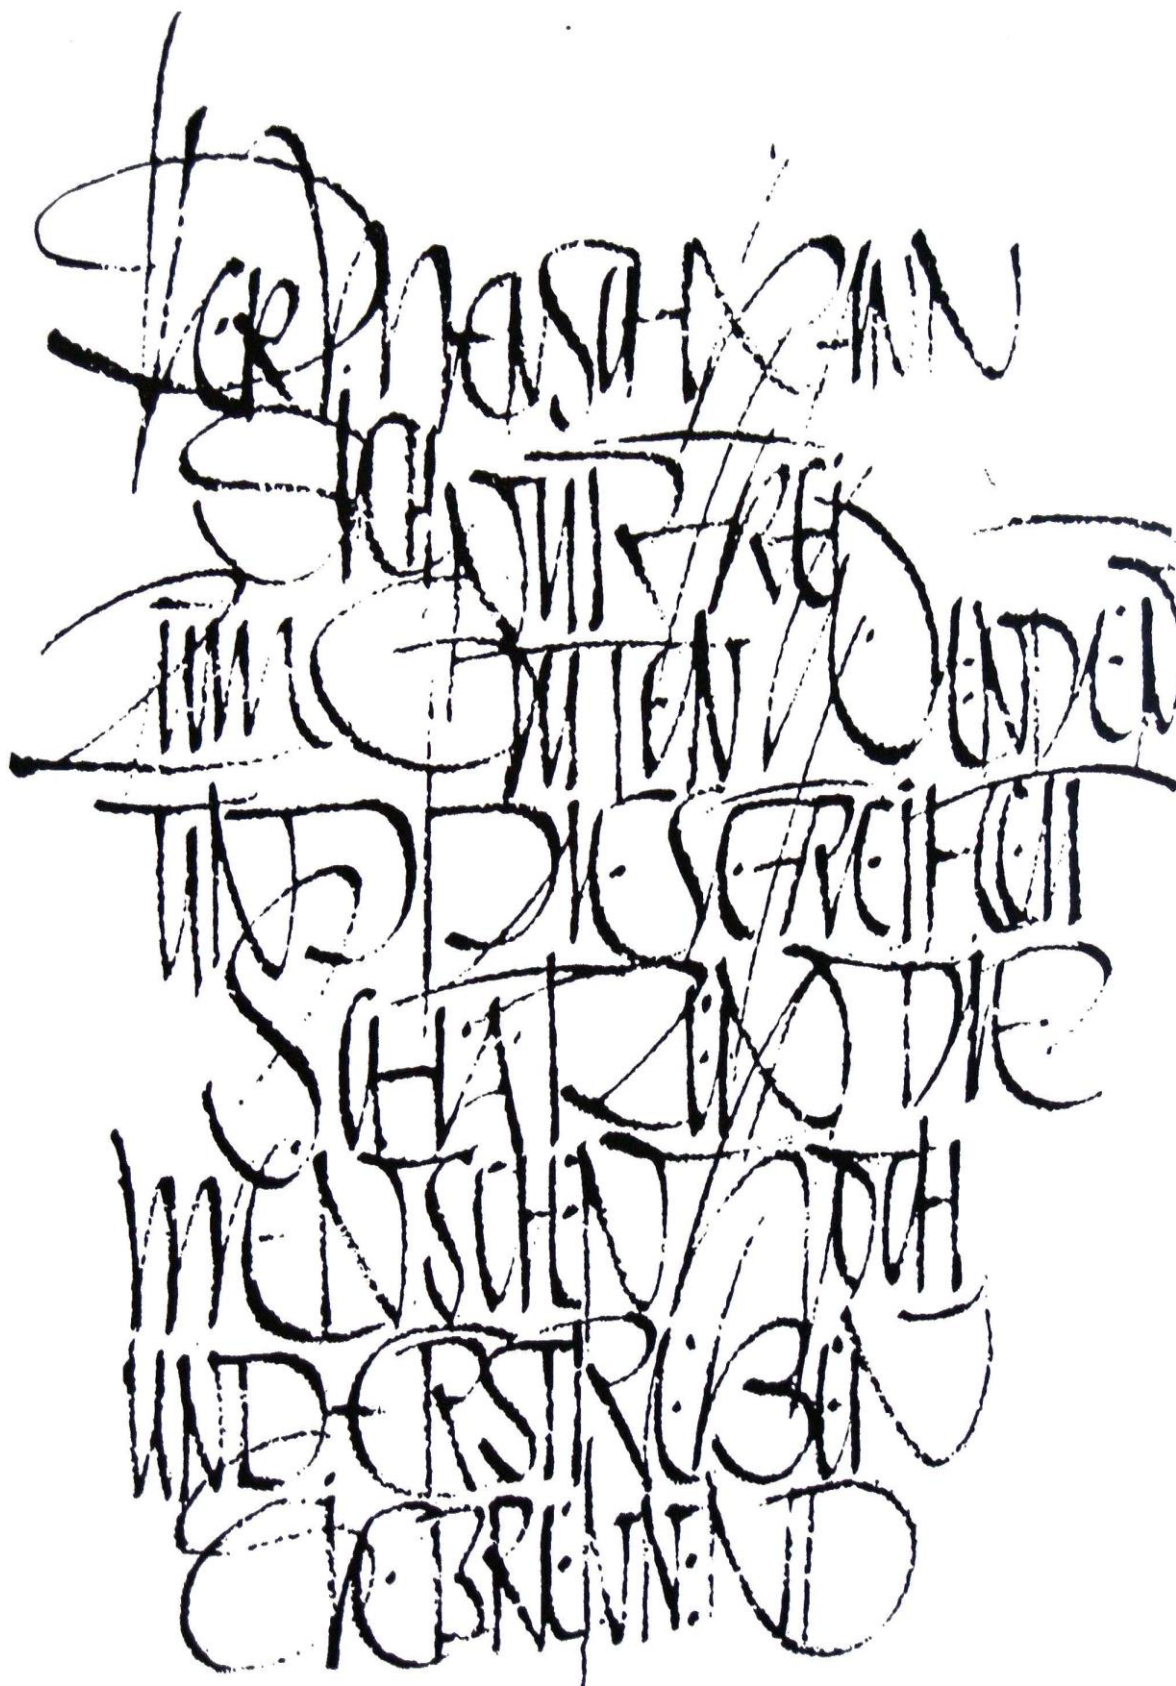 DER MENSCH KANN
SICH NUR FREI
ZUM GUTEN WENDEN
UND DIESE FREIHEIT
SCHÄTZEN DIE
MENSCHEN HOCH
UND ERSTREBEN
SIE BRENNEND